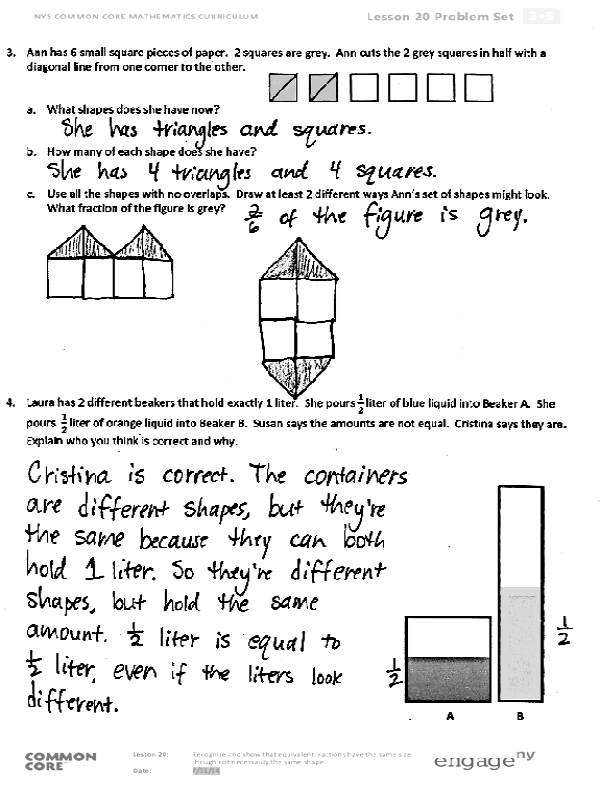 NYS COMMON CORE MATHEMATICS CURRICULUM
Lesson 20 Problem Set 3•5
3. Ann has 6 small square pieces of paper. 2 squares are grey. Ann cuts the 2 grey squares in half with a
diagonal line from one corner to the other.
a. What shapes does she have now?
She has triangles and squares.
b. How many of each shape does she have?
She has 4 triangles and 4 squares.
c. Use all the shapes with no overlaps. Draw at least 2 different ways Ann's set of shapes might look.
What fraction of the figure is grey? 2/6 of the figure is grey.
4. Laura has 2 different beakers that hold exactly 1 liter. She pours 1/2 liter of blue liquid into Beaker A. She
pours 1/2 liter of orange liquid into Beaker B. Susan says the amounts are not equal. Cristina says they are.
Explain who you think is correct and why.
Cristina is correct. The containers
are different shapes, but they're
the same because they can both
hold 1 liter. So they're different
shapes, but hold the same
amount. 1/2 liter is equal to
1/2 liter, even if the liters look
different.
1/2
1/2
A
B
COMMON
CORE
Lesson 20:
Recognize and show that equivalent fractions have the same size
though not necessarily the same shape.
Date:
engage ny